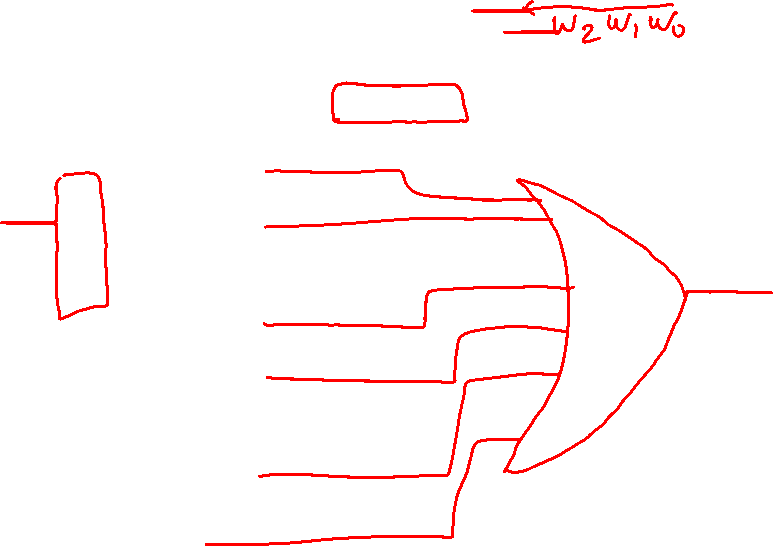 w₂ w₁ w₀